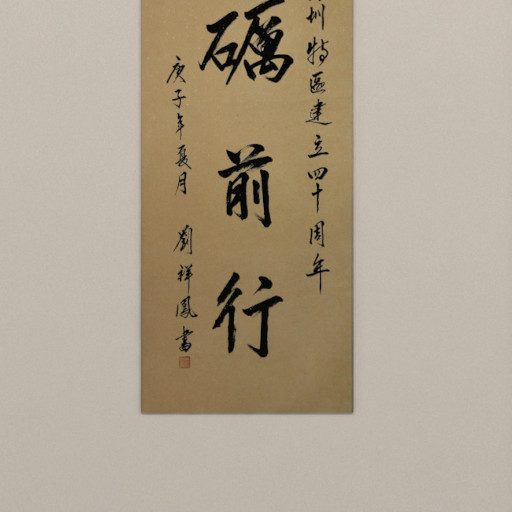 圳特區建立四十周年
礪前行
庚子年夏月 劉祥鳳書